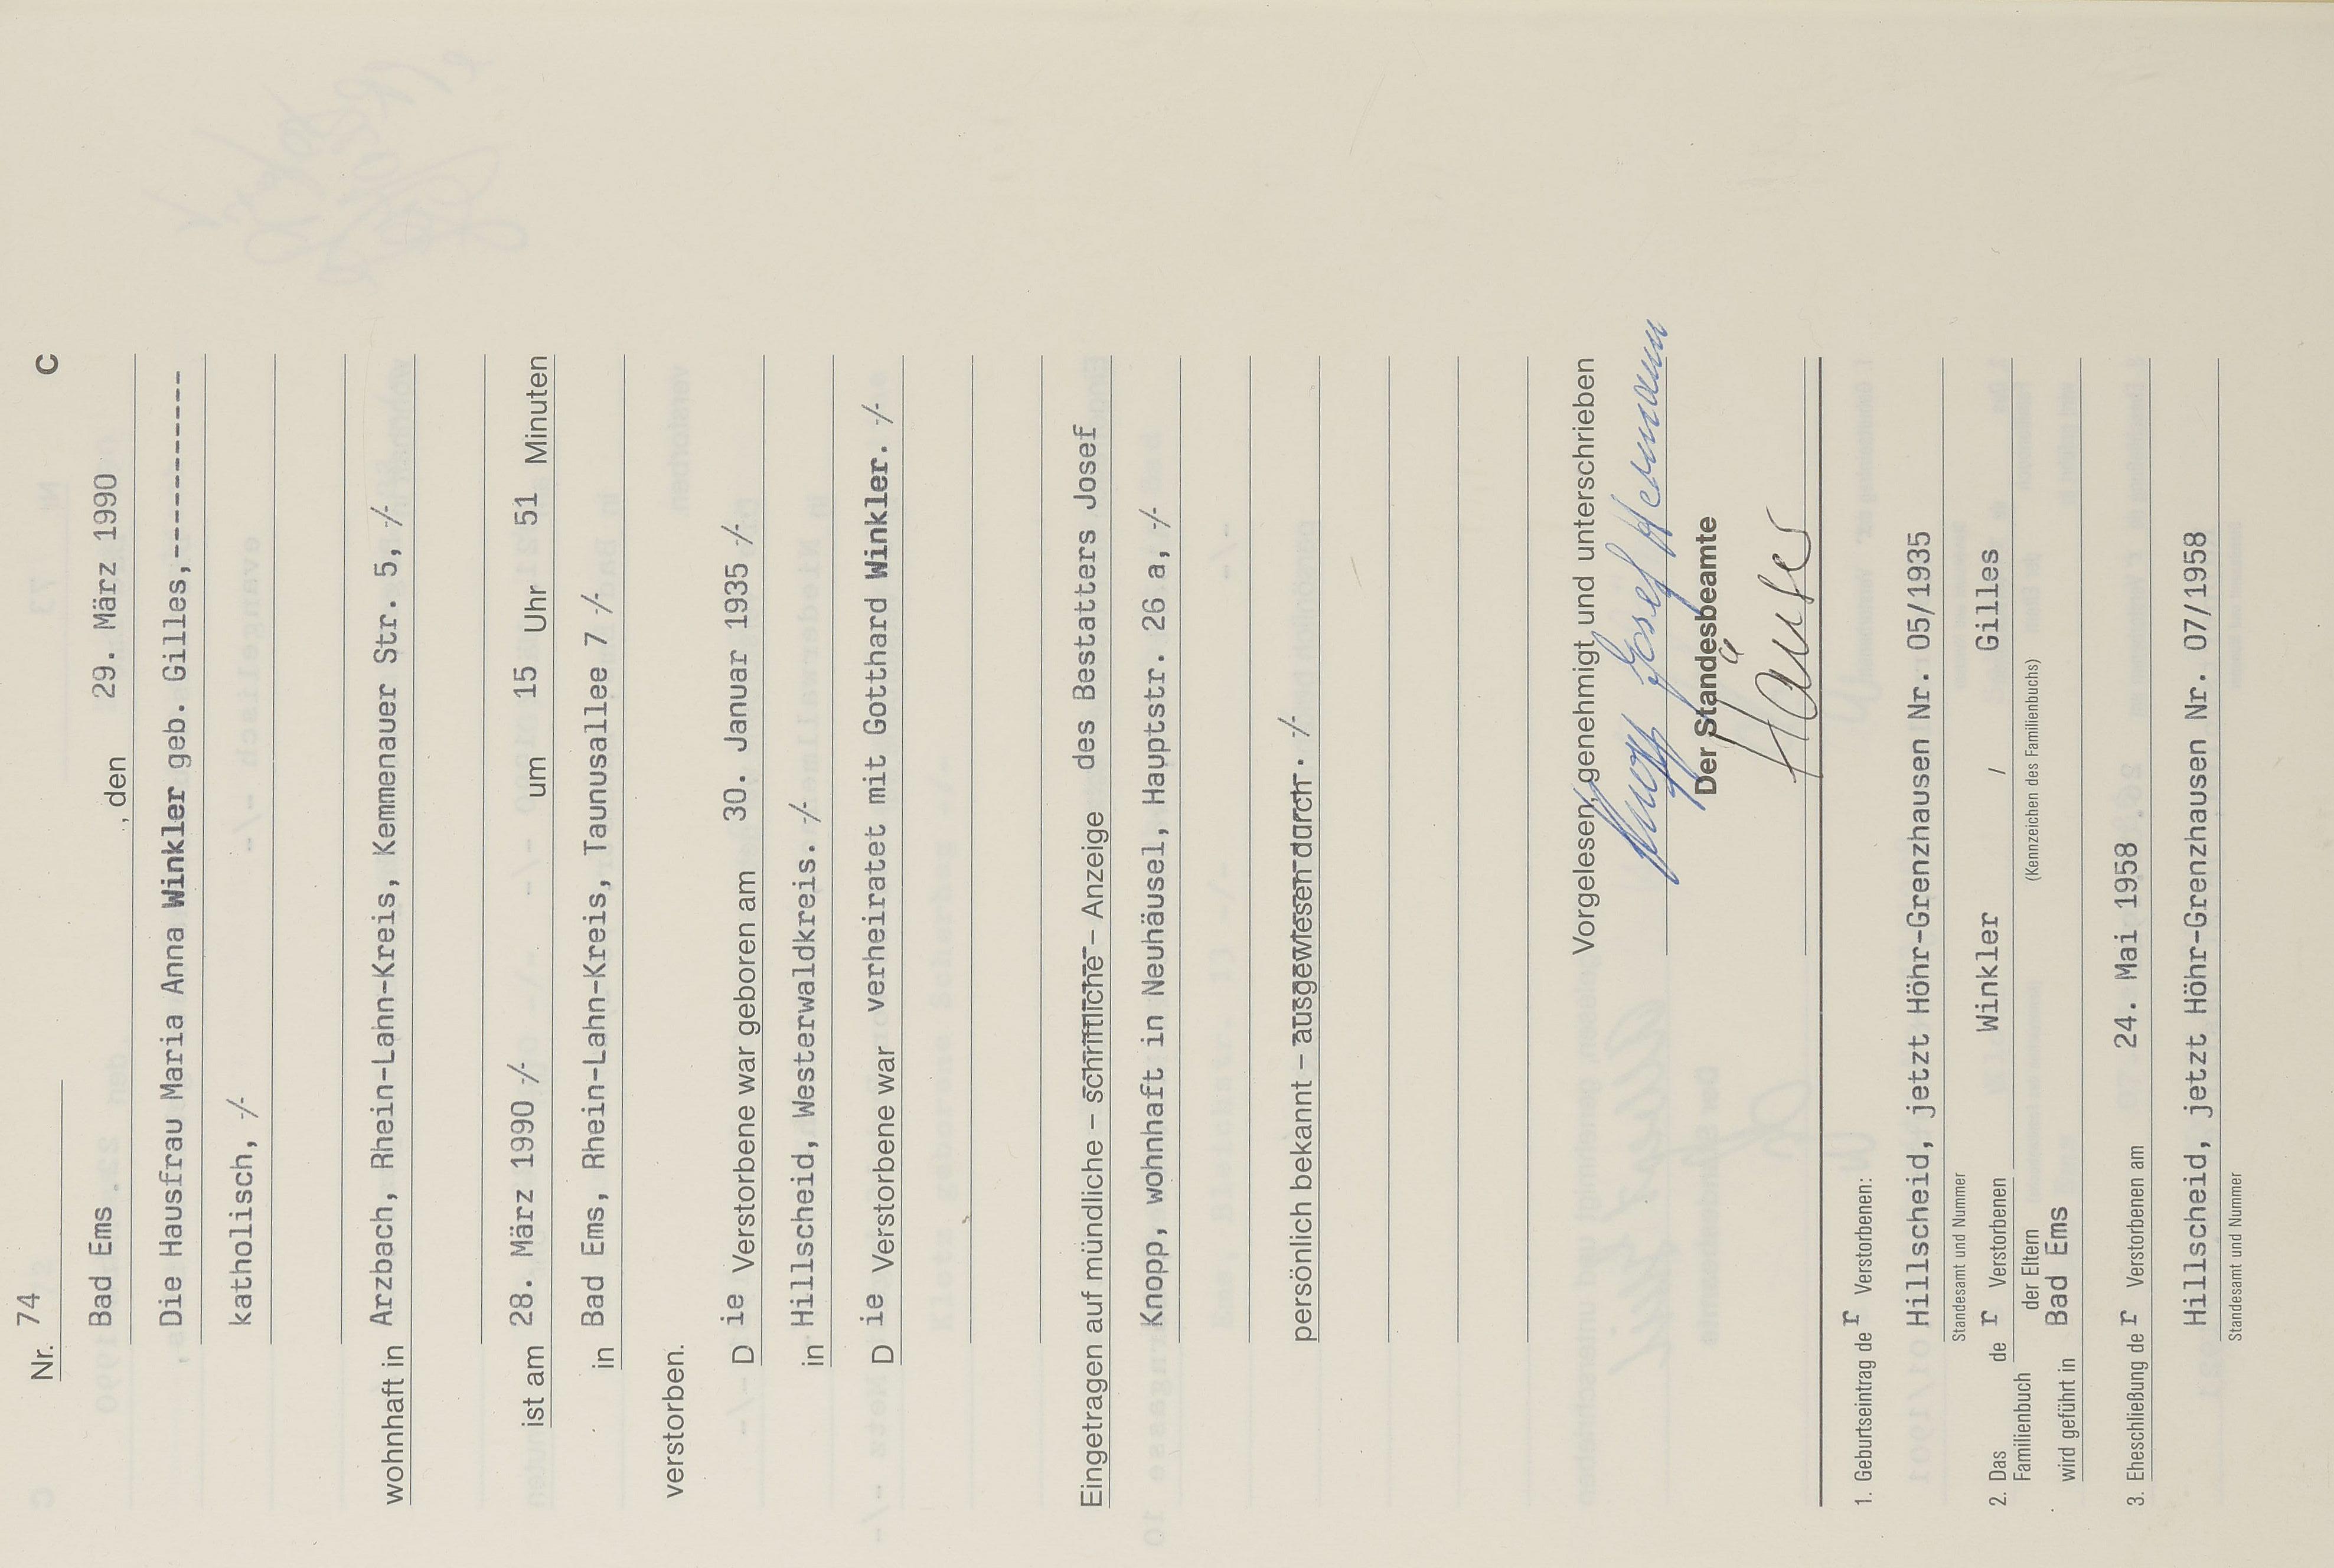 Nr. 74 C
Bad Ems , den 29. März 1990
Die Hausfrau Maria Anna Winkler geb. Gilles,-----------
katholisch, -/-
wohnhaft in Arzbach, Rhein-Lahn-Kreis, Kemmenauer Str. 5, -/-
ist am 28. März 1990 -/- um 15 Uhr 51 Minuten
in Bad Ems, Rhein-Lahn-Kreis, Taunusallee 7 -/-
verstorben.
D ie Verstorbene war geboren am 30. Januar 1935 -/-
in Hillscheid, Westerwaldkreis. -/-
D ie Verstorbene war verheiratet mit Gotthard Winkler. -/-
Eingetragen auf mündliche – schriftliche – Anzeige des Bestatters Josef
Knopp, wohnhaft in Neuhäusel, Hauptstr. 26 a, -/-
persönlich bekannt – ausgewiesen durch. -/-
Vorgelesen, genehmigt und unterschrieben
Knopp Josef Hermann
Der Standesbeamte
Hauser
1. Geburtseintrag de r Verstorbenen:
Hillscheid, jetzt Höhr-Grenzhausen Nr. 05/1935
Standesamt und Nummer
2. Das Familienbuch de r Verstorbenen Winkler / Gilles
der Eltern (Kennzeichen des Familienbuchs)
wird geführt in Bad Ems
3. Eheschließung de r Verstorbenen am 24. Mai 1958
Hillscheid, jetzt Höhr-Grenzhausen Nr. 07/1958
Standesamt und Nummer